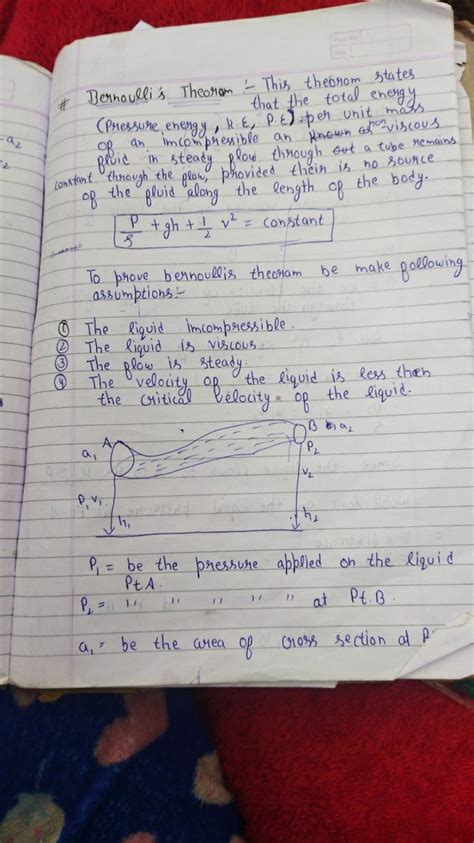 -a₂
# Bernoulli's Theorom :- This theorom states
that the total energy
(Pressure energy, K.E, P.E) per unit mass
of an imcompressible an non viscous
fluid in steady flow through a tube remains
constant through the flow, provided their is no source
of the fluid along the length of the body.
P/ρ + gh + 1/2 v² = constant
To prove bernoullis theoram be make following
assumptions:-
① The liquid imcompressible.
② The liquid is viscous.
③ The flow is steady.
④ The velocity of the liquid is less then
the critical velocity of the liquid.
A B a₂
a₁ P₂
v₂
P₁ v₁
h₁ h₂
P₁ = be the pressure applied on the liquid
Pt A.
P₂ = " " " " " at Pt.B.
a₁ = be the area of cross section at P